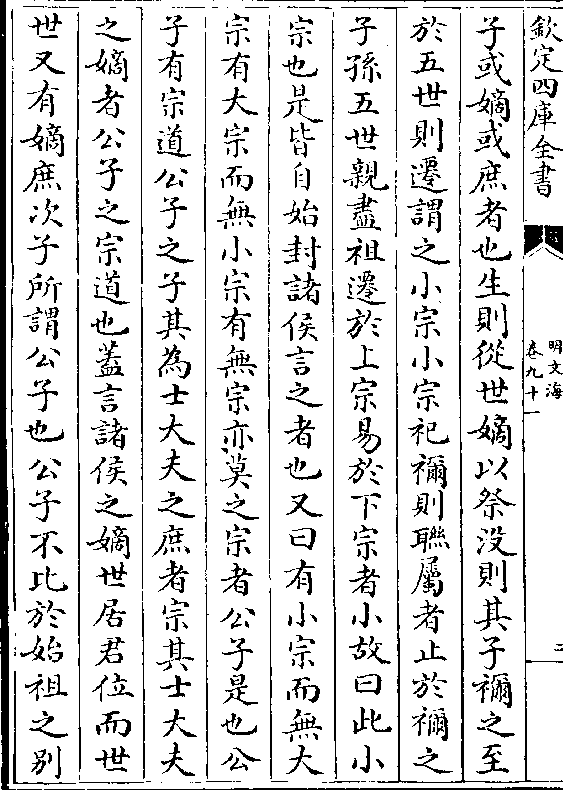 欽定四庫全書
明文海
卷九十一
二
子或嫡或庶者也生則從世嫡以祭没則其子禰之至
於五世則遷謂之小宗小宗祀禰則聯屬者止於禰之
子孫五世親盡祖遷於上宗易於下宗者小故曰此小
宗也是皆自始封諸侯言之者也又曰有小宗而無大
宗有大宗而無小宗有無宗亦莫之宗者公子是也公
子有宗道公子之子其為士大夫之庶者宗其士大夫
之嫡者公子之宗道也蓋言諸侯之嫡世居君位而世
世又有嫡庶次子所謂公子也公子不比於始祖之別